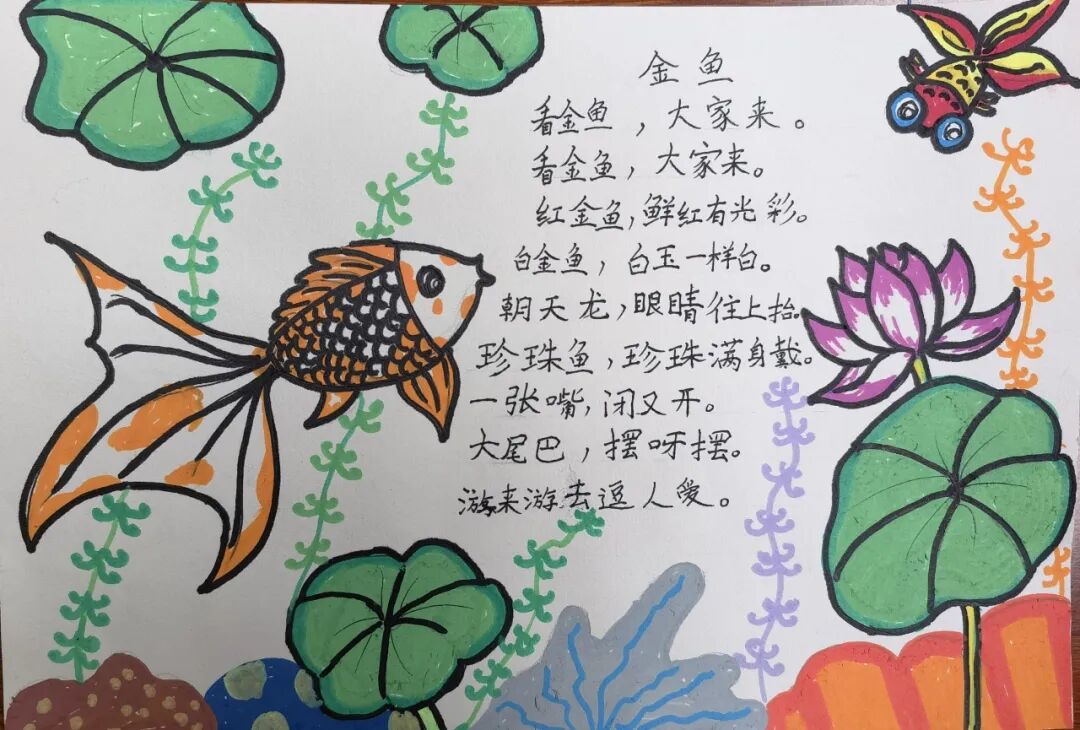 金鱼
看金鱼，大家来。
看金鱼，大家来。
红金鱼，鲜红有光彩。
白金鱼，白玉一样白。
朝天龙，眼睛往上抬。
珍珠鱼，珍珠满身戴。
一张嘴，闭又开。
大尾巴，摆呀摆。
游来游去逗人爱。